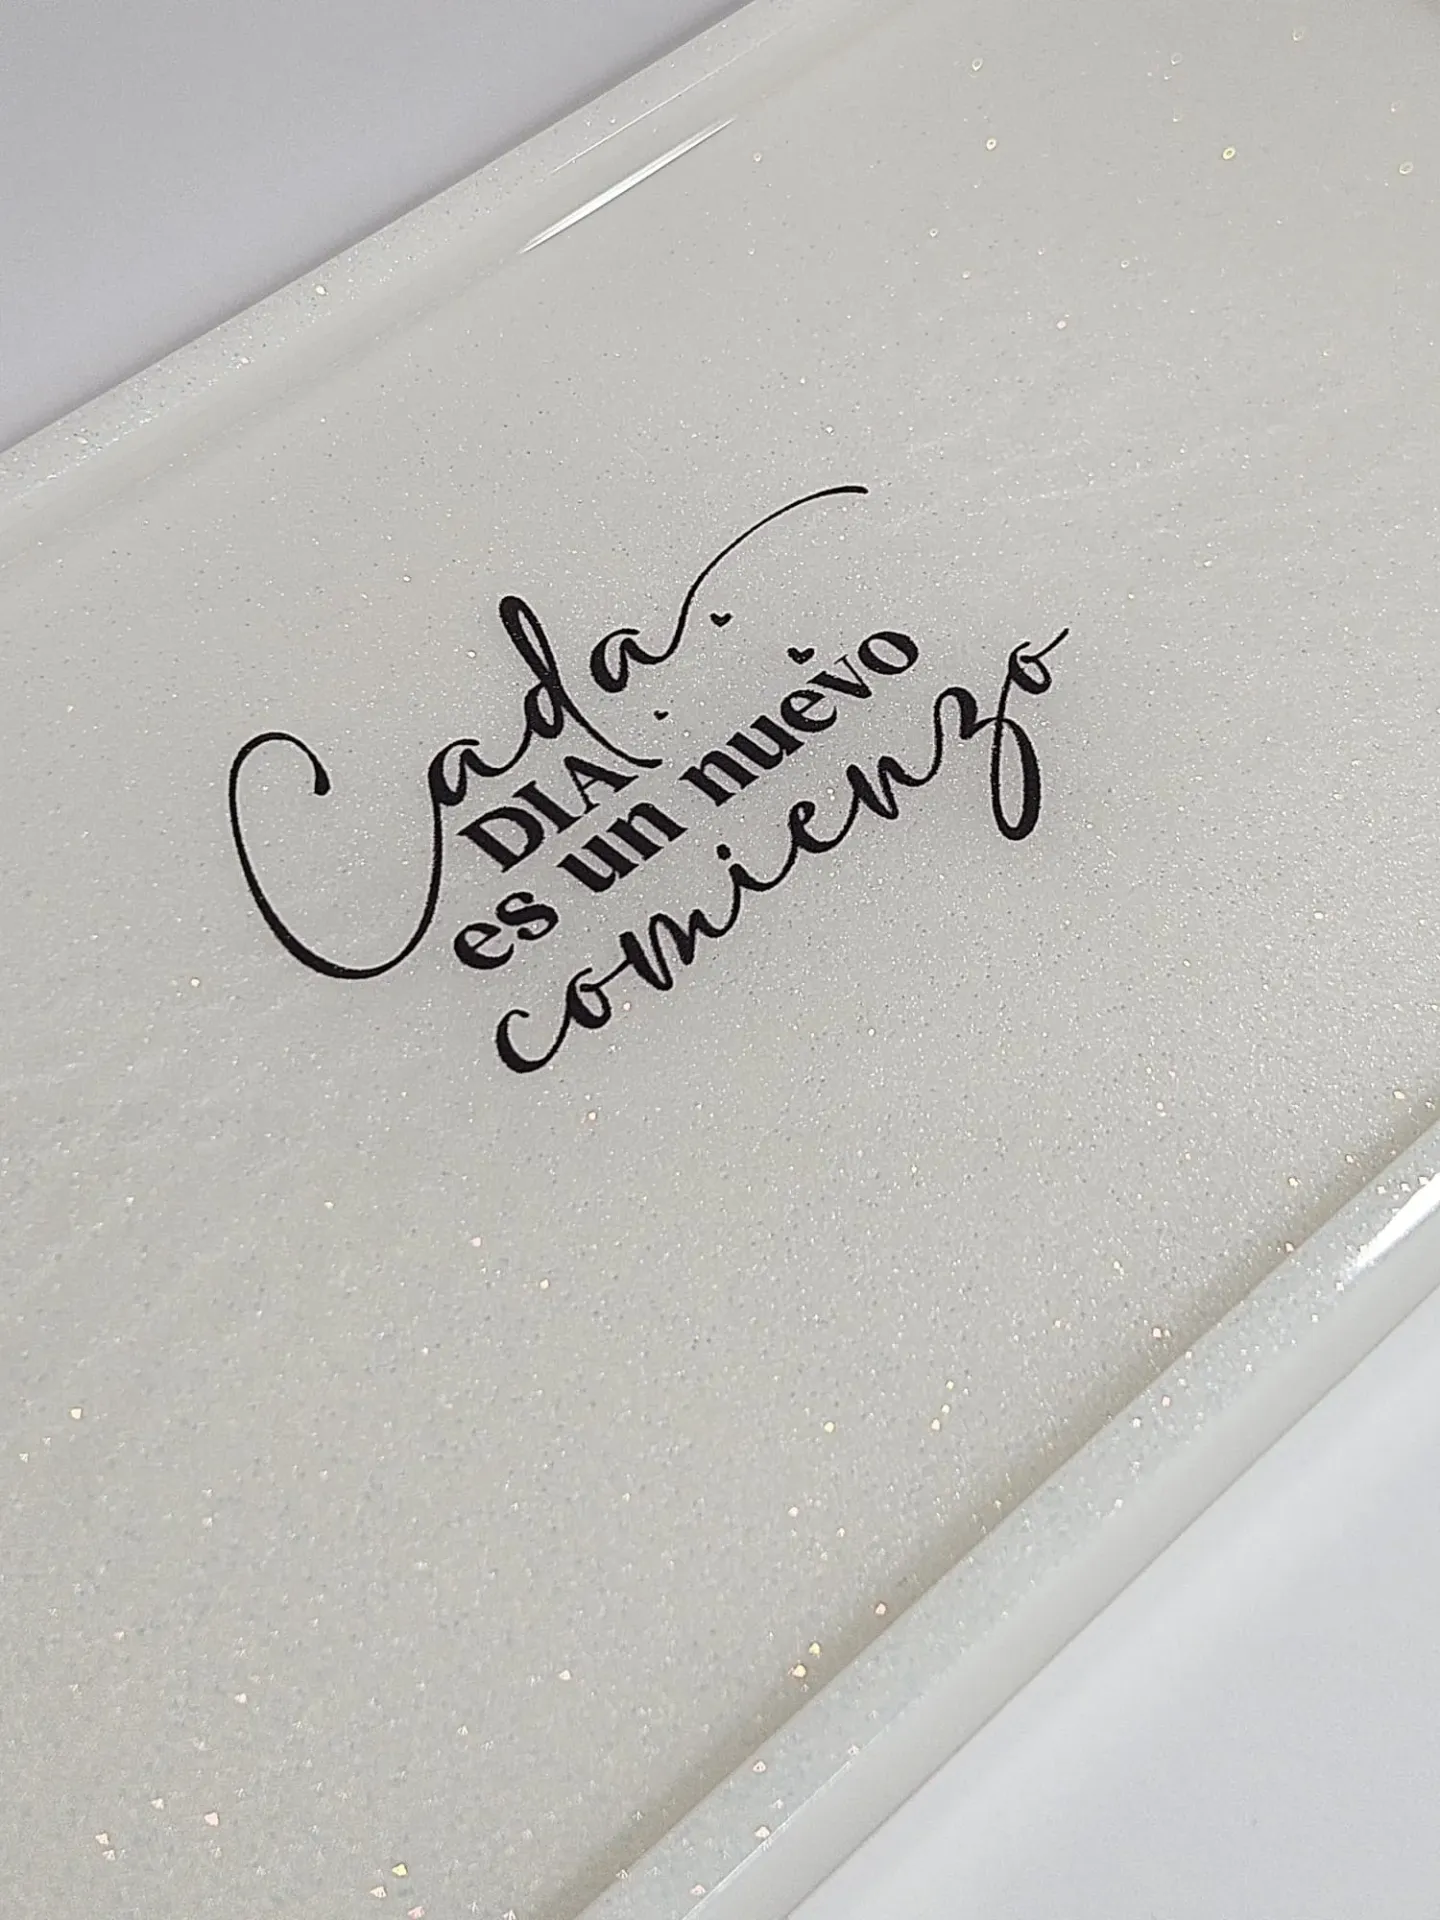 Cada
DIA
es un nuevo
comienzo